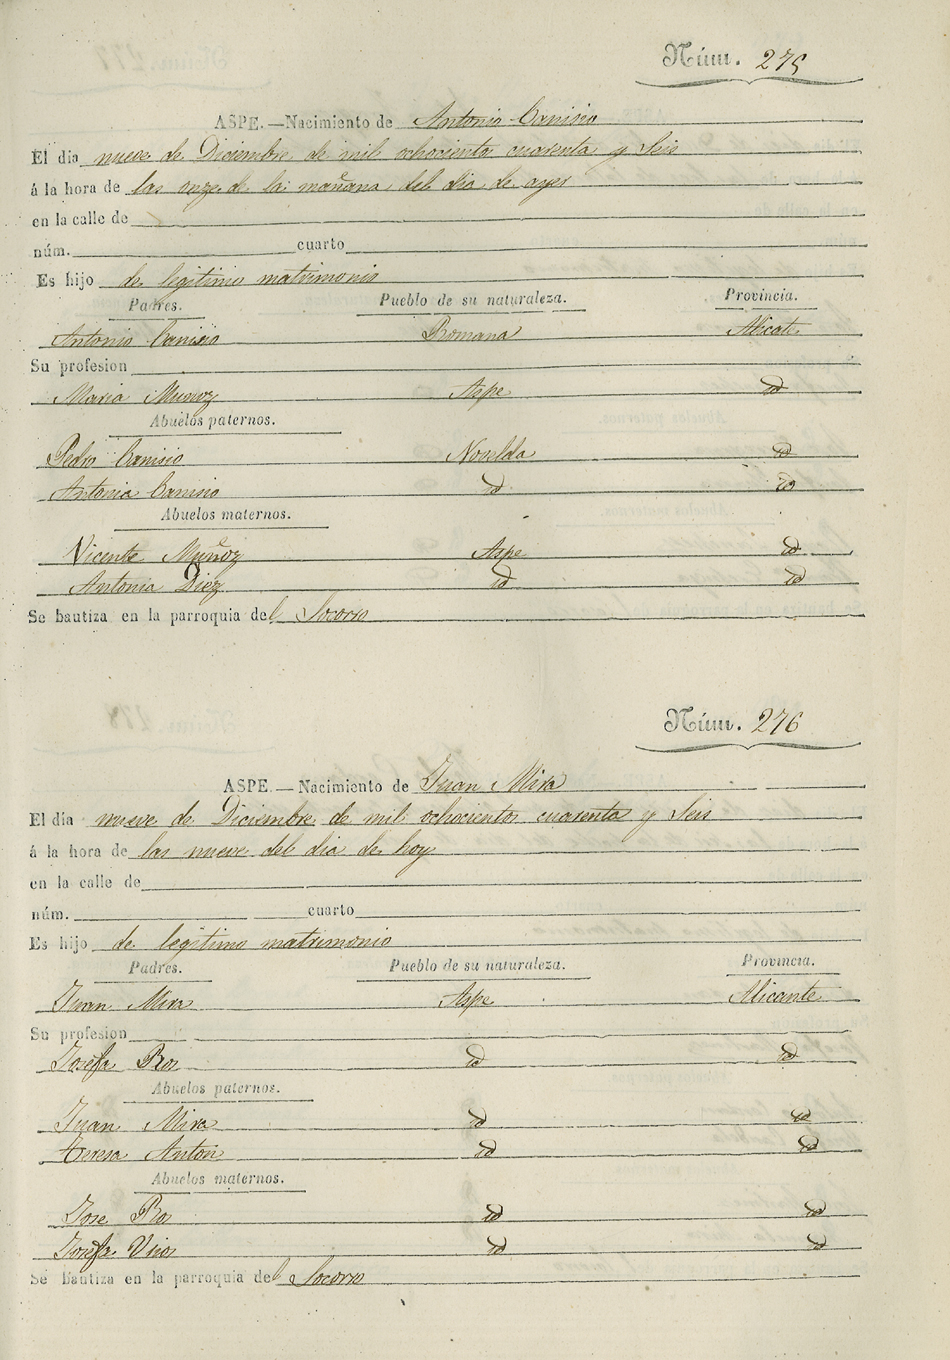 Núm. 275
ASPE.—Nacimiento de Antonio Canisio
El dia nueve de Diciembre de mil ochociento cuarenta y Seis
á la hora de las onze de la mañana del dia de ayer
en la calle de
núm. cuarto
Es hijo de legitimo matrimonio
Padres. Pueblo de su naturaleza. Provincia.
Antonio Canisio Romana Alicate
Su profesion
Maria Munoz Aspe id
Abuelos paternos.
Pedro Canisio Novelda id
Antonia Canisio id id
Abuelos maternos.
Vicente Muñoz Aspe id
Antonia Diez id id
Se bautiza en la parroquia del Socorro
Núm. 276
ASPE.—Nacimiento de Juan Mira
El dia nueve de Diciembre de mil ochociento cuarenta y Seis
á la hora de las nueve del dia de hoy
en la calle de
núm. cuarto
Es hijo de legitimo matrimonio
Padres. Pueblo de su naturaleza. Provincia.
Juan Mira Aspe Alicante
Su profesion
Josefa Ros id id
Abuelos paternos.
Juan Mira id id
Teresa Anton id id
Abuelos maternos.
Jose Ros id id
Josefa id id
Se bautiza en la parroquia del Socorro